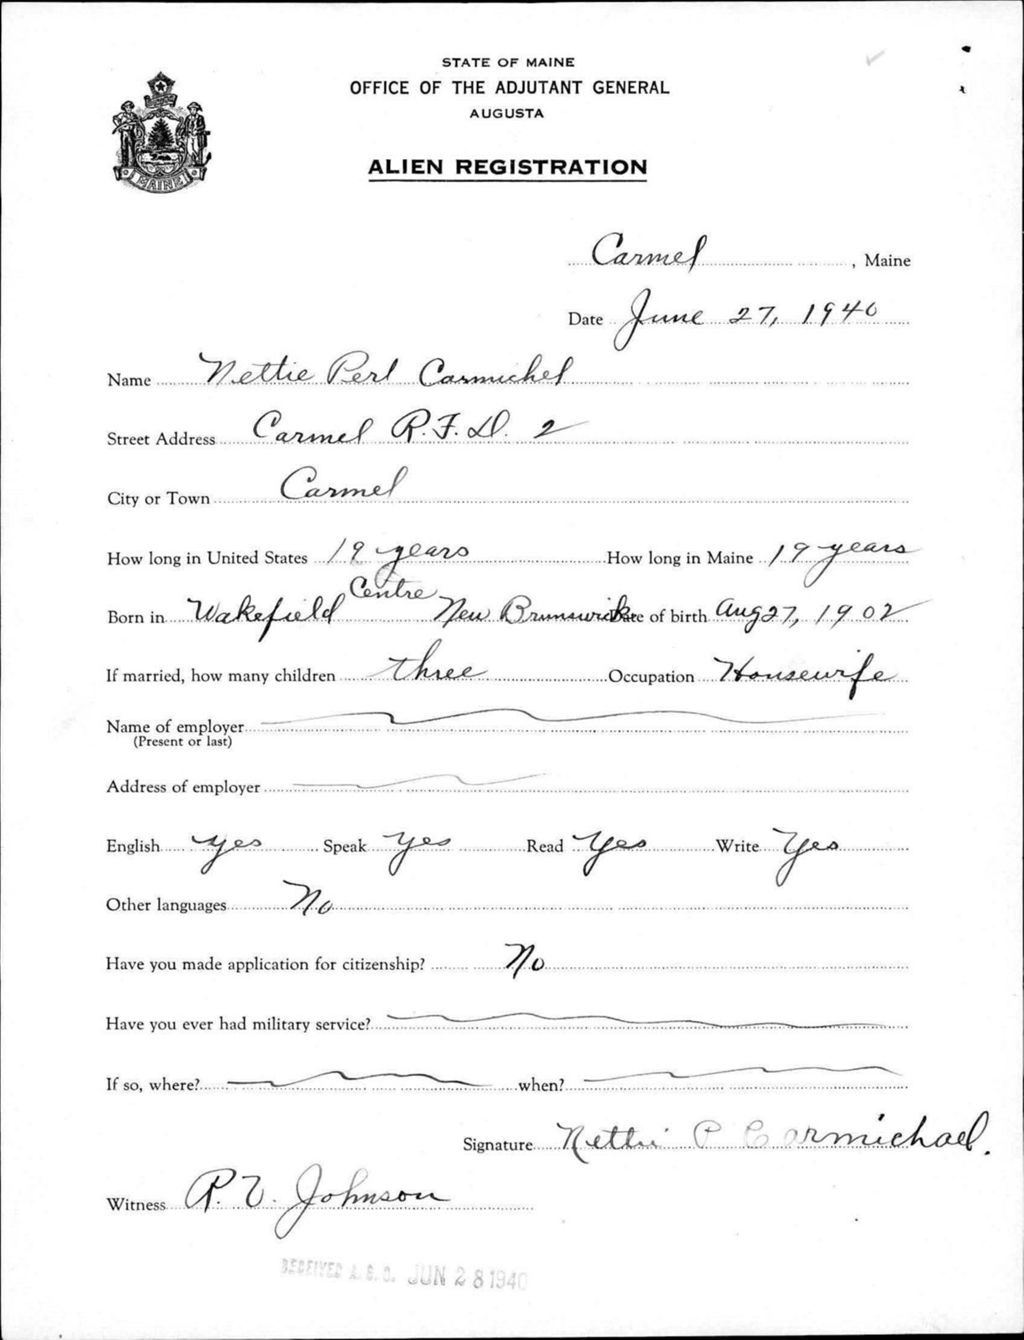 STATE OF MAINE
OFFICE OF THE ADJUTANT GENERAL
AUGUSTA
ALIEN REGISTRATION
MAINE
Carmel, Maine
Date June 27, 1940
Name Nettie Perl Carmichel
Street Address Carmel R.F.D. 2
City or Town Carmel
How long in United States 19 years How long in Maine 19 years
Born in Wakefield Centre New Brunswick Date of birth Aug 27, 1902
If married, how many children three Occupation Housewife
Name of employer
(Present or last)
Address of employer
English yes Speak yes Read Yes Write Yes
Other languages No
Have you made application for citizenship? No
Have you ever had military service?
If so, where? when?
Signature Nettie P Carmichael.
Witness R. V. Johnson
RECEIVED A.G.O. JUN 28 1940